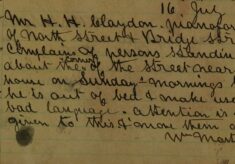 16. July
Mr. H. H. Claydon. pianofor
of North Street & Bridge Stre
Complain of persons standin
corner
about the of the street near
house on Sunday mornings
he is out of bed & make use
bad language. attention is
given to this & move them o
Wm Mart